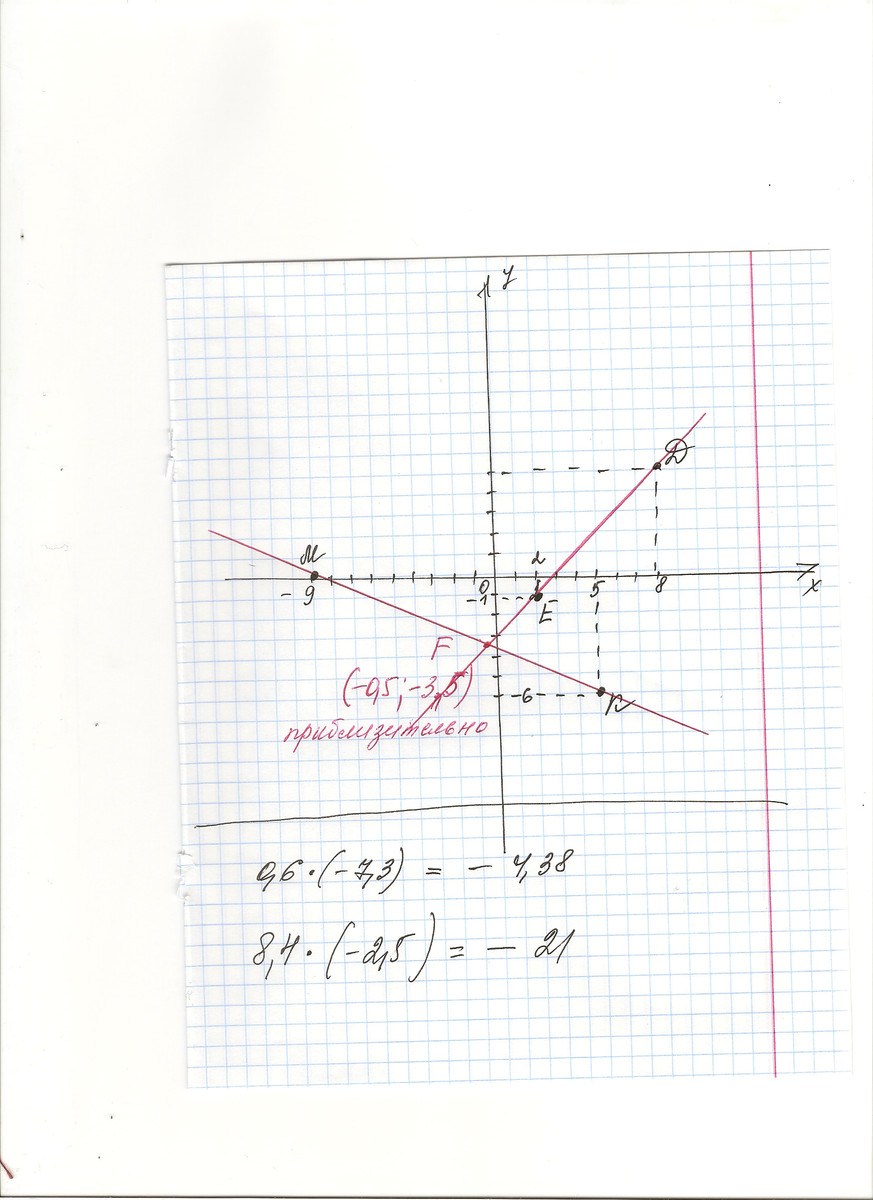 y
D
M
2
-9
0
5
8
x
-1
E
F
(-0,5; -3,5)
-6
приблизительно
0,6·(-7,3) = - 4,38
8,4·(-2,5) = - 21